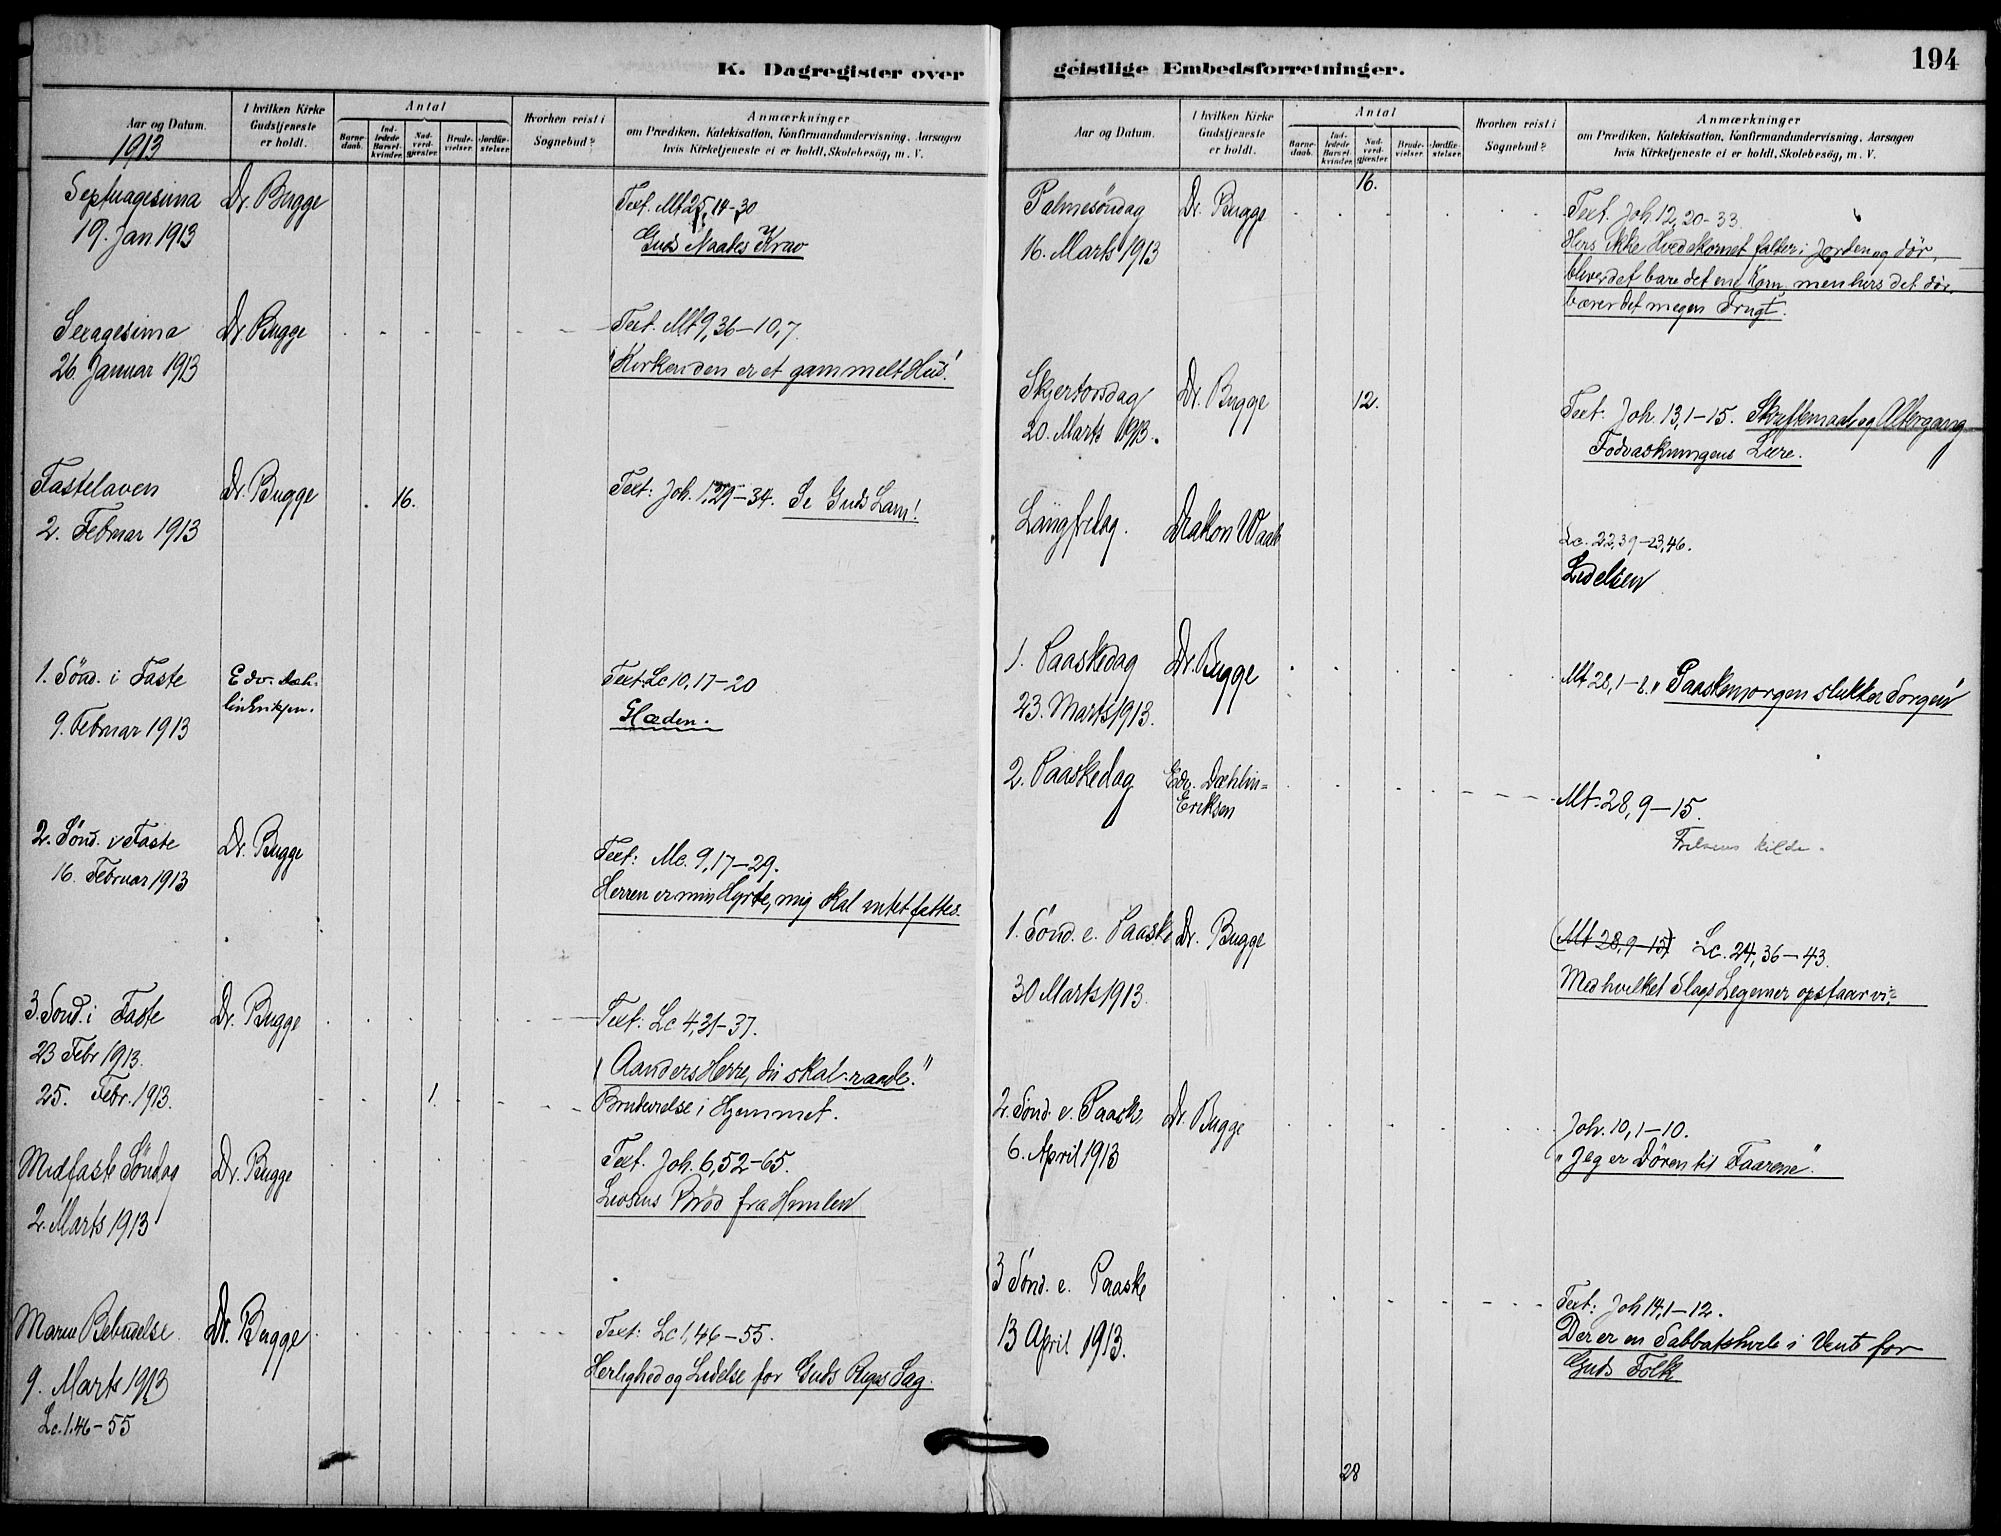 K. Dagregister over
Aar og Datum.
1913
I hvilken Kirke
Gudstjeneste
er holdt.
Antal
Barne-
daab.
Ind-
ledede
Barsel-
kvinder.
Nad-
verd-
gjester.
Brude-
vielser.
Jordfæ-
stelser.
Hvorhen reist i
Sognebud?
Anmærkninger
om Prædiken, Katekisation, Konfirmandundervisning, Aarsagen
hvis Kirketjeneste ei er holdt, Skolebesög, m. V.
Septuagesima Dr. Bugge Text. Mt 25, 14-30
19. Jan 1913 Guds Naades Krav
Sexagesima Dr. Bugge Text. Mt 9, 36-10,7.
26. Januar 1913 "Kirken den er et gammelt Hus"
Fastelaven Dr. Bugge 16. Text: Joh. 1,29-34. Se Guds Lam!
2. Februar 1913
1. Sönd. i Faste Edv. Dæh-
lin Eriksen. Text: Lc 10, 17-20
9. Februar 1913 Glæden.
2. Sönd. i Faste Dr. Bugge Text: Mc. 9, 17-29.
16. Februar 1913 Herren er min Hyrde, mig skal intet fattes.
3. Sönd. i Faste Dr. Bugge Text: Lc 4, 31-37.
23 Febr 1913. "Aanders Herre, du skal raade."
25. Febr. 1913. 1. i Hjemmet.
Midfaste Söndag Dr. Bugge Text. Joh. 6, 52-65.
2. Marts 1913 Livsens Bröd fra Himlen
Mariæ Bebudelse. Dr. Bugge Text: Lc 1, 46-55.
9. Marts 1913 Herlighed og Lidelse for Guds Riges Sag.
Lc. 1.46-55
geistlige Embedsforretninger.
194
Aar og Datum.
I hvilken Kirke
Gudstjeneste
er holdt.
Antal
Barne-
daab.
Ind-
ledede
Barsel-
kvinder.
Nad-
verd-
gjester.
Brude-
vielser.
Jordfæ-
stelser.
Hvorhen reist i
Sognebud?
Anmærkninger
om Prædiken, Katekisation, Konfirmandundervisning, Aarsagen
hvis Kirketjeneste ei er holdt, Skolebesög, m. V.
Palmesöndag Dr. Bugge 16. Text. Joh 12, 20-33.
16. Marts 1913 Hvis ikke Hvedekornet falder i Jorden og dör,
bliver det bare det ene Korn, men hvis det dör
bærer det megen Frugt.
Skjertorsdag Dr. Bugge 12. Text: Joh. 13, 1-15. Skriftemaal og Altergang
20. Marts 1913. Fodvaskningens Lære.
Langfredag. Diakon Lc. 22,39-23,46.
Lidelsen
1. Paaskedag Dr. Bugge Mt 28, 1-8. "Paaskemorgen slukker Sorgen"
23. Marts 1913.
2. Paaskedag Edv. Dæhlin-
Eriksen Mt. 28, 9-15.
kilde.
1. Sönd. e. Paaske Dr. Bugge (Mt 28, 9-15) Lc. 24, 36-43.
30 Marts 1913. Med hvilket Slags Legemer opstaar vi?
2. Sönd. e. Paaske Dr. Bugge Joh. 10, 1-10.
6. April 1913 "Jeg er Dören til Faarene".
3 Sönd. e. Paaske Text: Joh 14, 1-12.
13 April 1913. Der er en Sabbatshvile i Vente for
Guds Folk
28